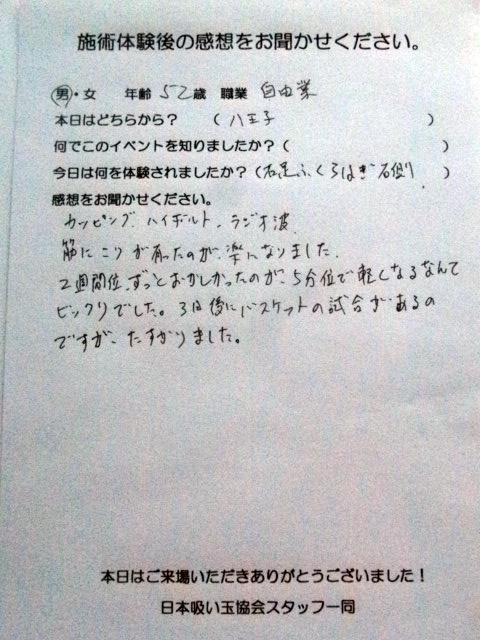 施術体験後の感想をお聞かせください。
男・女 年齢 52歳 職業 自由業
本日はどちらから? (八王子 )
何でこのイベントを知りましたか?( )
今日は何を体験されましたか?(右足ふくらはぎ右側 )
感想をお聞かせください。
カッピング、ハイボルト、ラジオ波
筋にこりが有ったのが、楽になりました。
2週間位、ずっとおかしかったのが、5分位で軽くなるなんて
ビックリでした。3日後にバスケットの試合があるの
ですが、たすかりました。
本日はご来場いただきありがとうございました!
日本吸い玉協会スタッフ一同